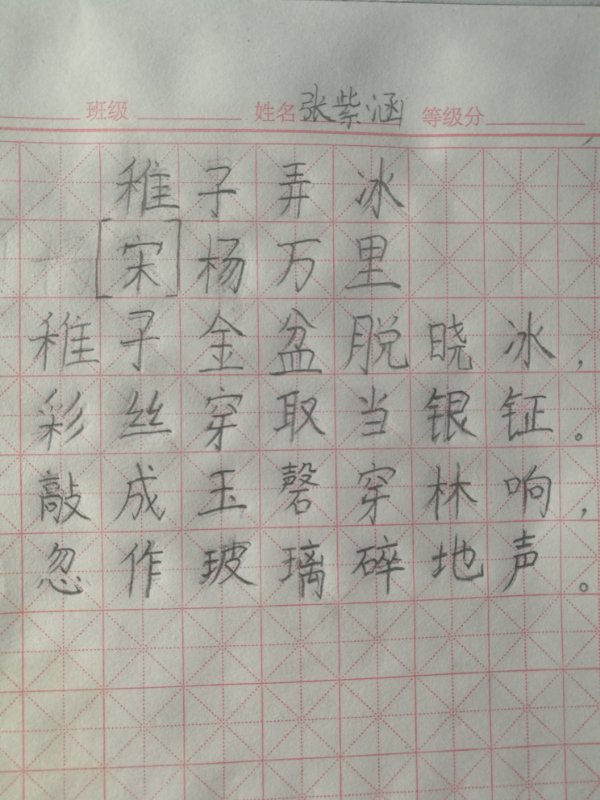 班级 姓名 张紫涵 等级分
稚子弄冰
[宋]杨万里
稚子金盆脱晓冰，
彩丝穿取当银钲。
敲成玉磬穿林响，
忽作玻璃碎地声。